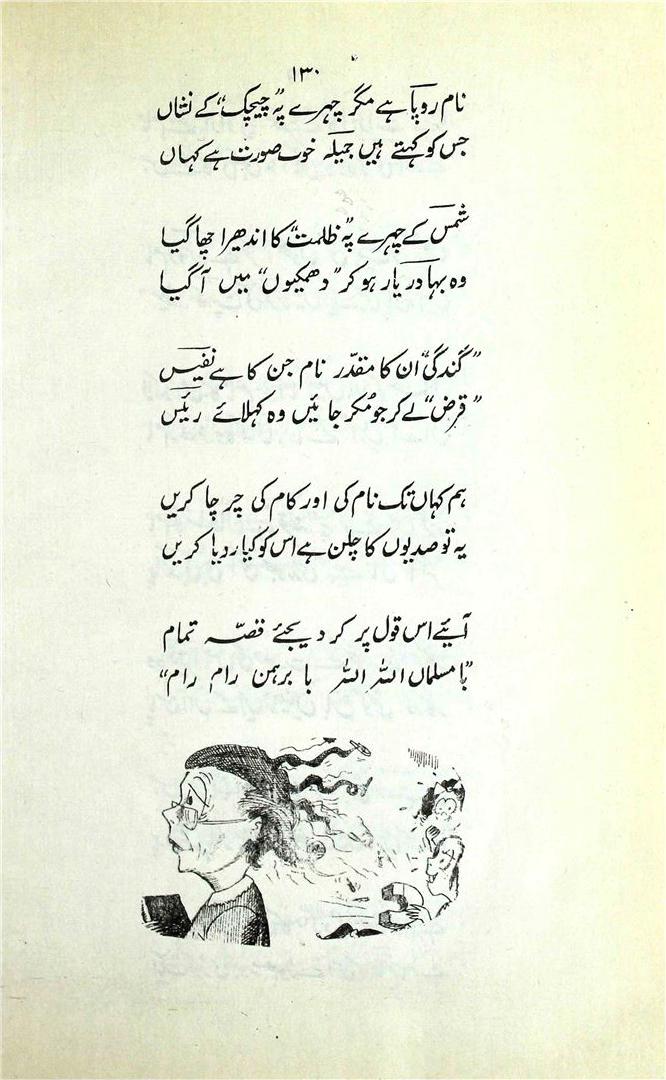 ۱۳۰
نام روپا ہے مگر چہرے پہ "چیچک" کے نشاں
جس کو کہتے ہیں جمیلہ خوب صورت ہے کہاں
شمس کے چہرے پہ "ظلمت" کا اندھیرا چھا گیا
وہ بہادر یار ہو کر "دھمکیوں" میں آ گیا
"گندگی" ان کا مقدّر نام جن کا ہے نفیس
"قرض" لے کر جو مُکر جائیں وہ کہلائے رئیس
ہم کہاں تک نام کی اور کام کی چرچا کریں
یہ تو صدیوں کا چلن ہے اس کو کیا رویا کریں
آئیے اس قول پر کر دیجئے قصّہ تمام
"با مسلماں اللہ اللہ با برہمن رام رام"